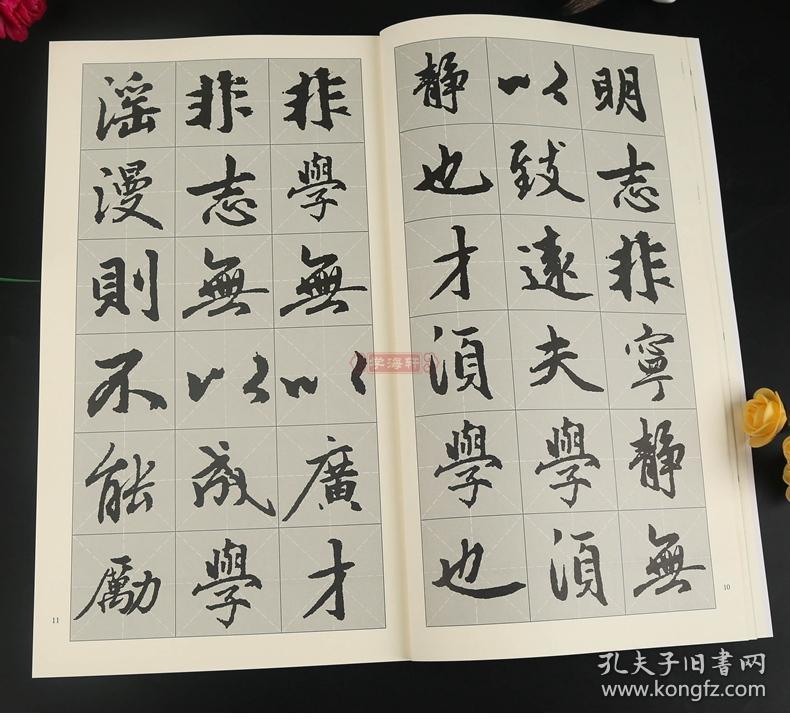 明志非寧静無
以致遠夫學須
静也才須學也
10
非學無以廣才
非志無以成學
淫漫則不能勵
11
学海轩
孔夫子旧书网
www.kongfz.com